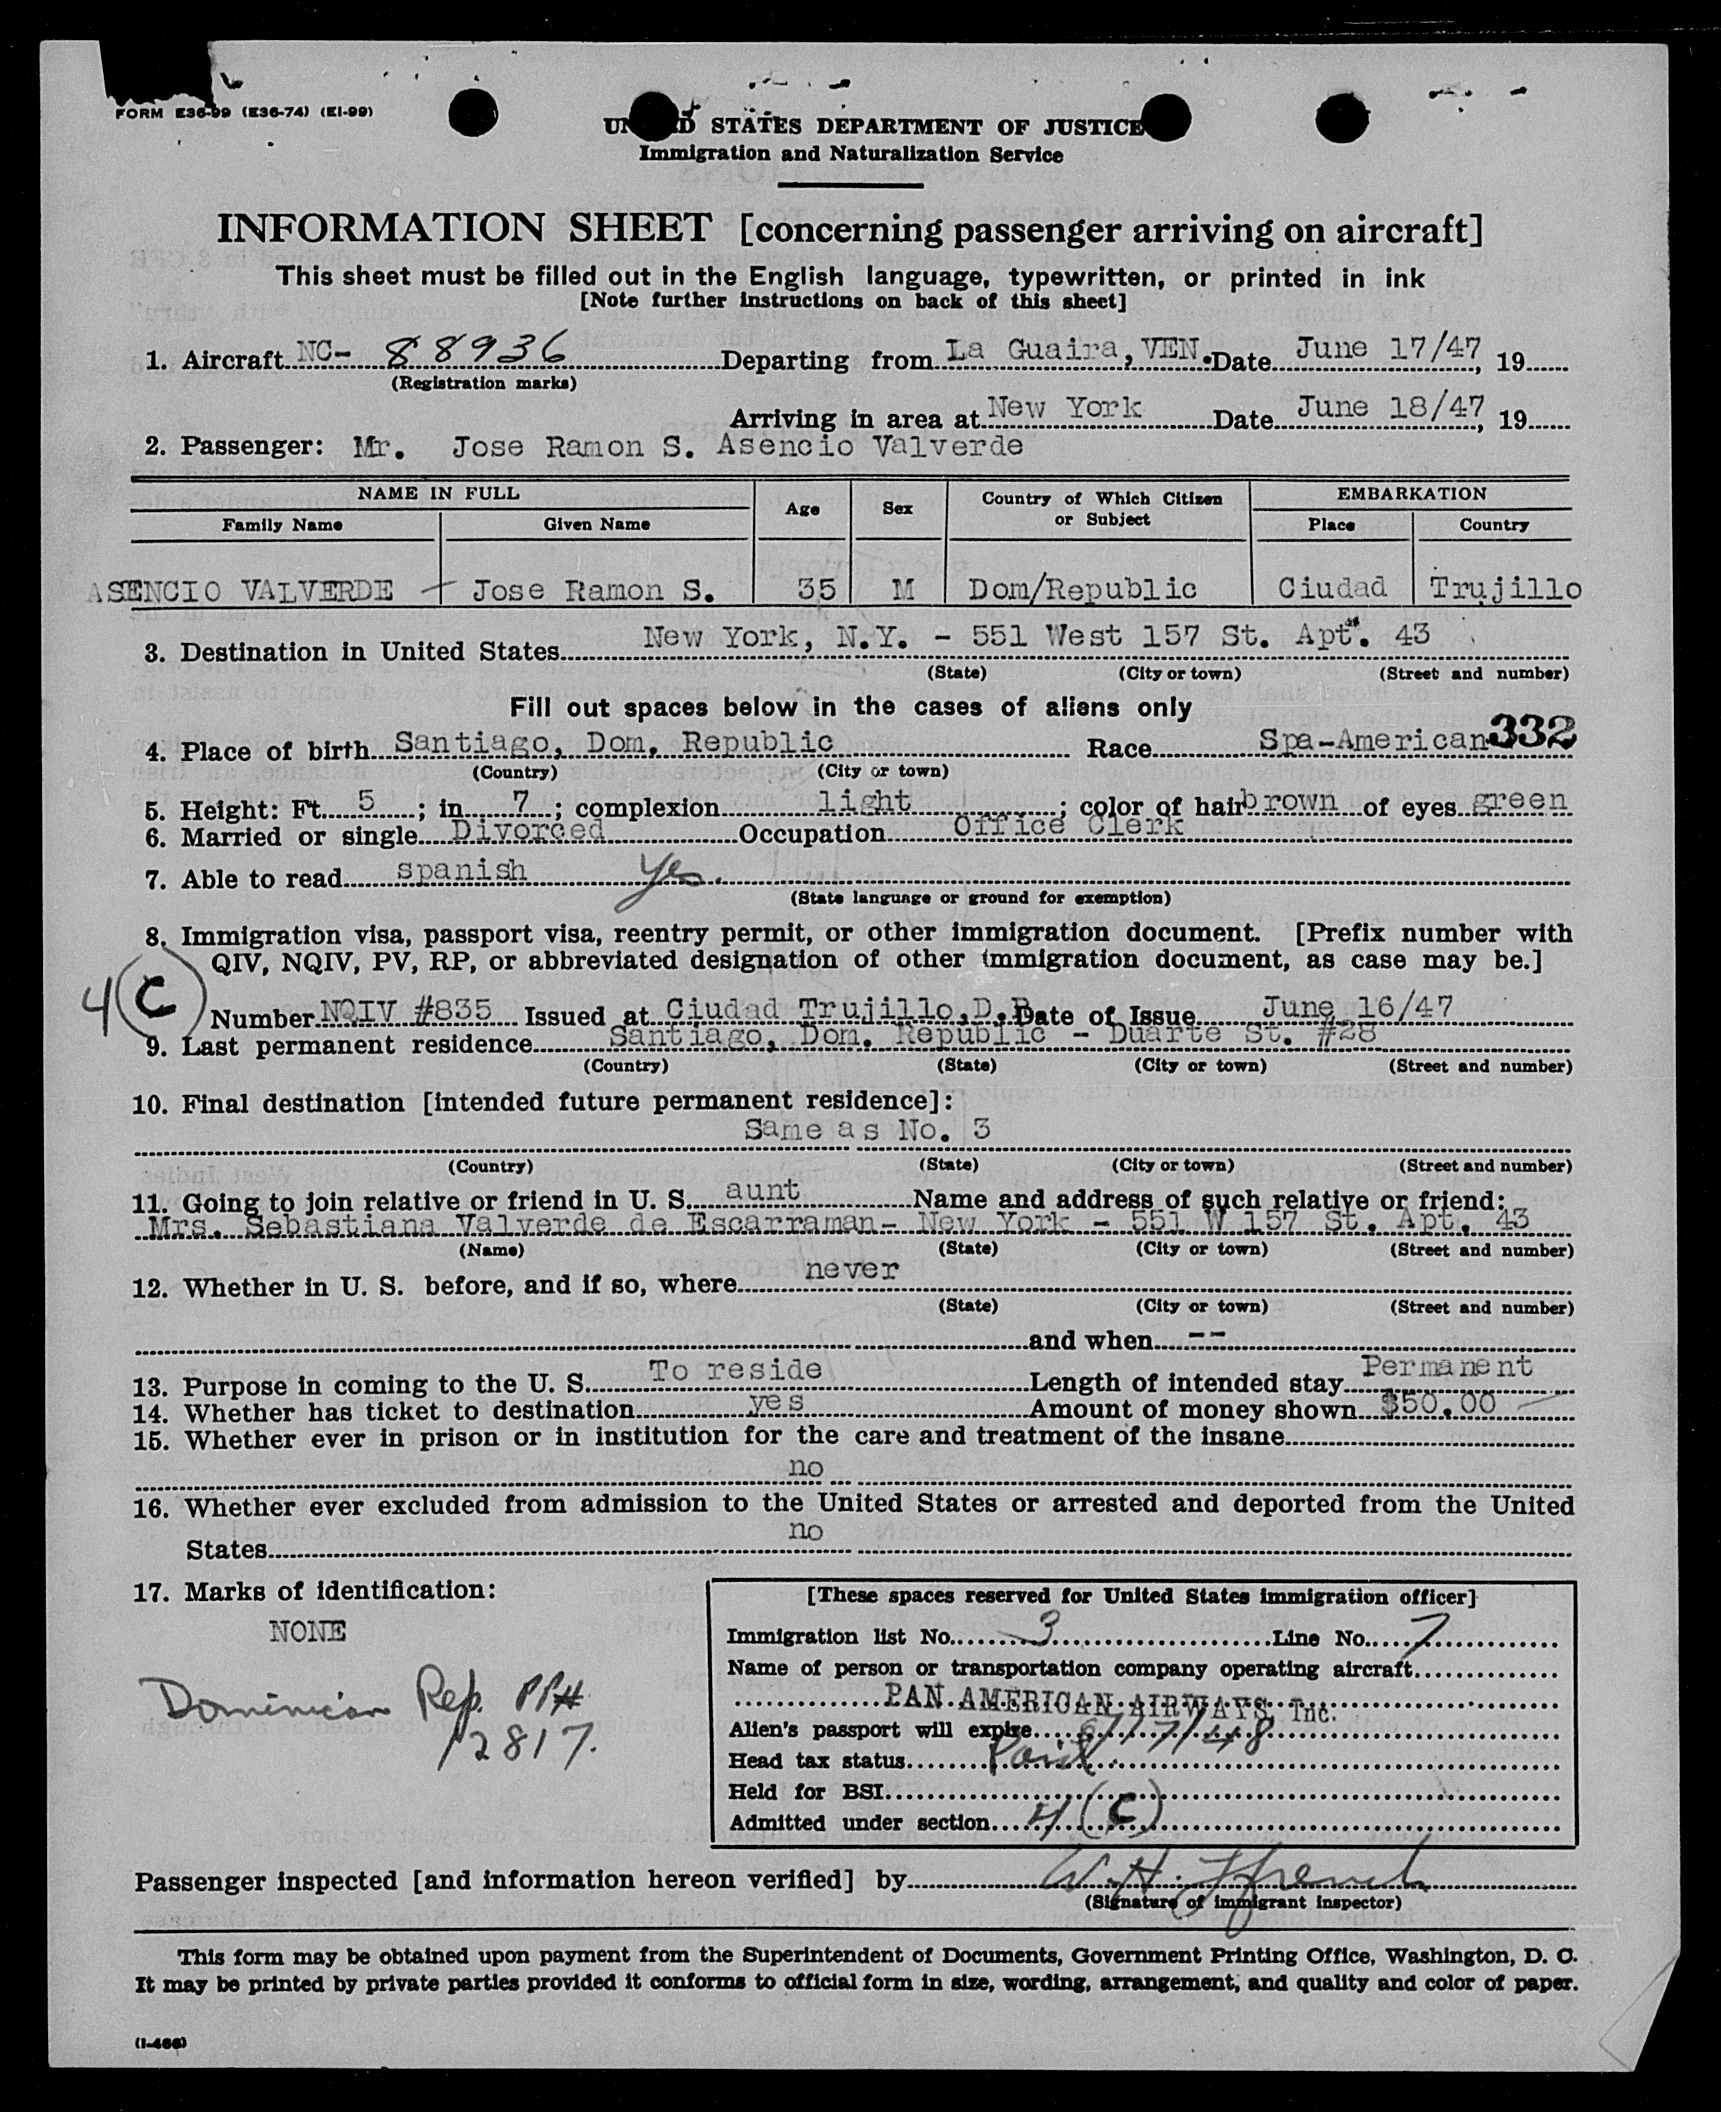 FORM E36-99 (E36-74) (EI-99)
UN D STATES DEPARTMENT OF JUSTICE
Immigration and Naturalization Service
INFORMATION SHEET [concerning passenger arriving on aircraft]
This sheet must be filled out in the English language, typewritten, or printed in ink
[Note further instructions on back of this sheet]
1. Aircraft NC- 88936 Departing from La Guaira, VEN. Date June 17/47, 19
(Registration marks)
Arriving in area at New York Date June 18/47, 19
2. Passenger: Mr. Jose Ramon S. Asencio Valverde
NAME IN FULL Age Sex Country of Which Citizen or Subject EMBARKATION
Family Name Given Name Place Country
ASENCIO VALVERDE Jose Ramon S. 35 M Dom/Republic Ciudad Trujillo
3. Destination in United States New York, N.Y. - 551 West 157 St. Apt. 43
(State) (City or town) (Street and number)
Fill out spaces below in the cases of aliens only
4. Place of birth Santiago, Dom. Republic Race Spa-American 332
(Country) (City or town)
5. Height: Ft. 5; in. 7; complexion light; color of hair brown of eyes green
6. Married or single Divorced Occupation Office Clerk
7. Able to read spanish yes.
(State language or ground for exemption)
8. Immigration visa, passport visa, reentry permit, or other immigration document. [Prefix number with
QIV, NQIV, PV, RP, or abbreviated designation of other immigration document, as case may be.]
4(C) Number NQIV #835 Issued at Ciudad Trujillo,D.R. Date of Issue June 16/47
9. Last permanent residence Santiago, Dom. Republic - Duarte St. #28
(Country) (State) (City or town) (Street and number)
10. Final destination [intended future permanent residence]:
Same as No. 3
(Country) (State) (City or town) (Street and number)
11. Going to join relative or friend in U. S. aunt Name and address of such relative or friend:
Mrs. Sebastiana Valverde de Escarraman- New York - 551 W 157 St. Apt. 43
(Name) (State) (City or town) (Street and number)
12. Whether in U. S. before, and if so, where never
(State) (City or town) (Street and number)
and when --
13. Purpose in coming to the U. S. To reside Length of intended stay Permanent
14. Whether has ticket to destination yes Amount of money shown $50.00
15. Whether ever in prison or in institution for the care and treatment of the insane
no
16. Whether ever excluded from admission to the United States or arrested and deported from the United
States no
17. Marks of identification:
NONE
Dominican Rep. PP#
12817.
[These spaces reserved for United States immigration officer]
Immigration list No. 3 Line No. 7
Name of person or transportation company operating aircraft
PAN AMERICAN AIRWAYS, Inc.
Alien's passport will expire 6/17/48
Head tax status Paid
Held for BSI
Admitted under section 4(C)
Passenger inspected [and information hereon verified] by W. H. Ffrench
(Signature of immigrant inspector)
This form may be obtained upon payment from the Superintendent of Documents, Government Printing Office, Washington, D. C.
It may be printed by private parties provided it conforms to official form in size, wording, arrangement, and quality and color of paper.
(I-466)